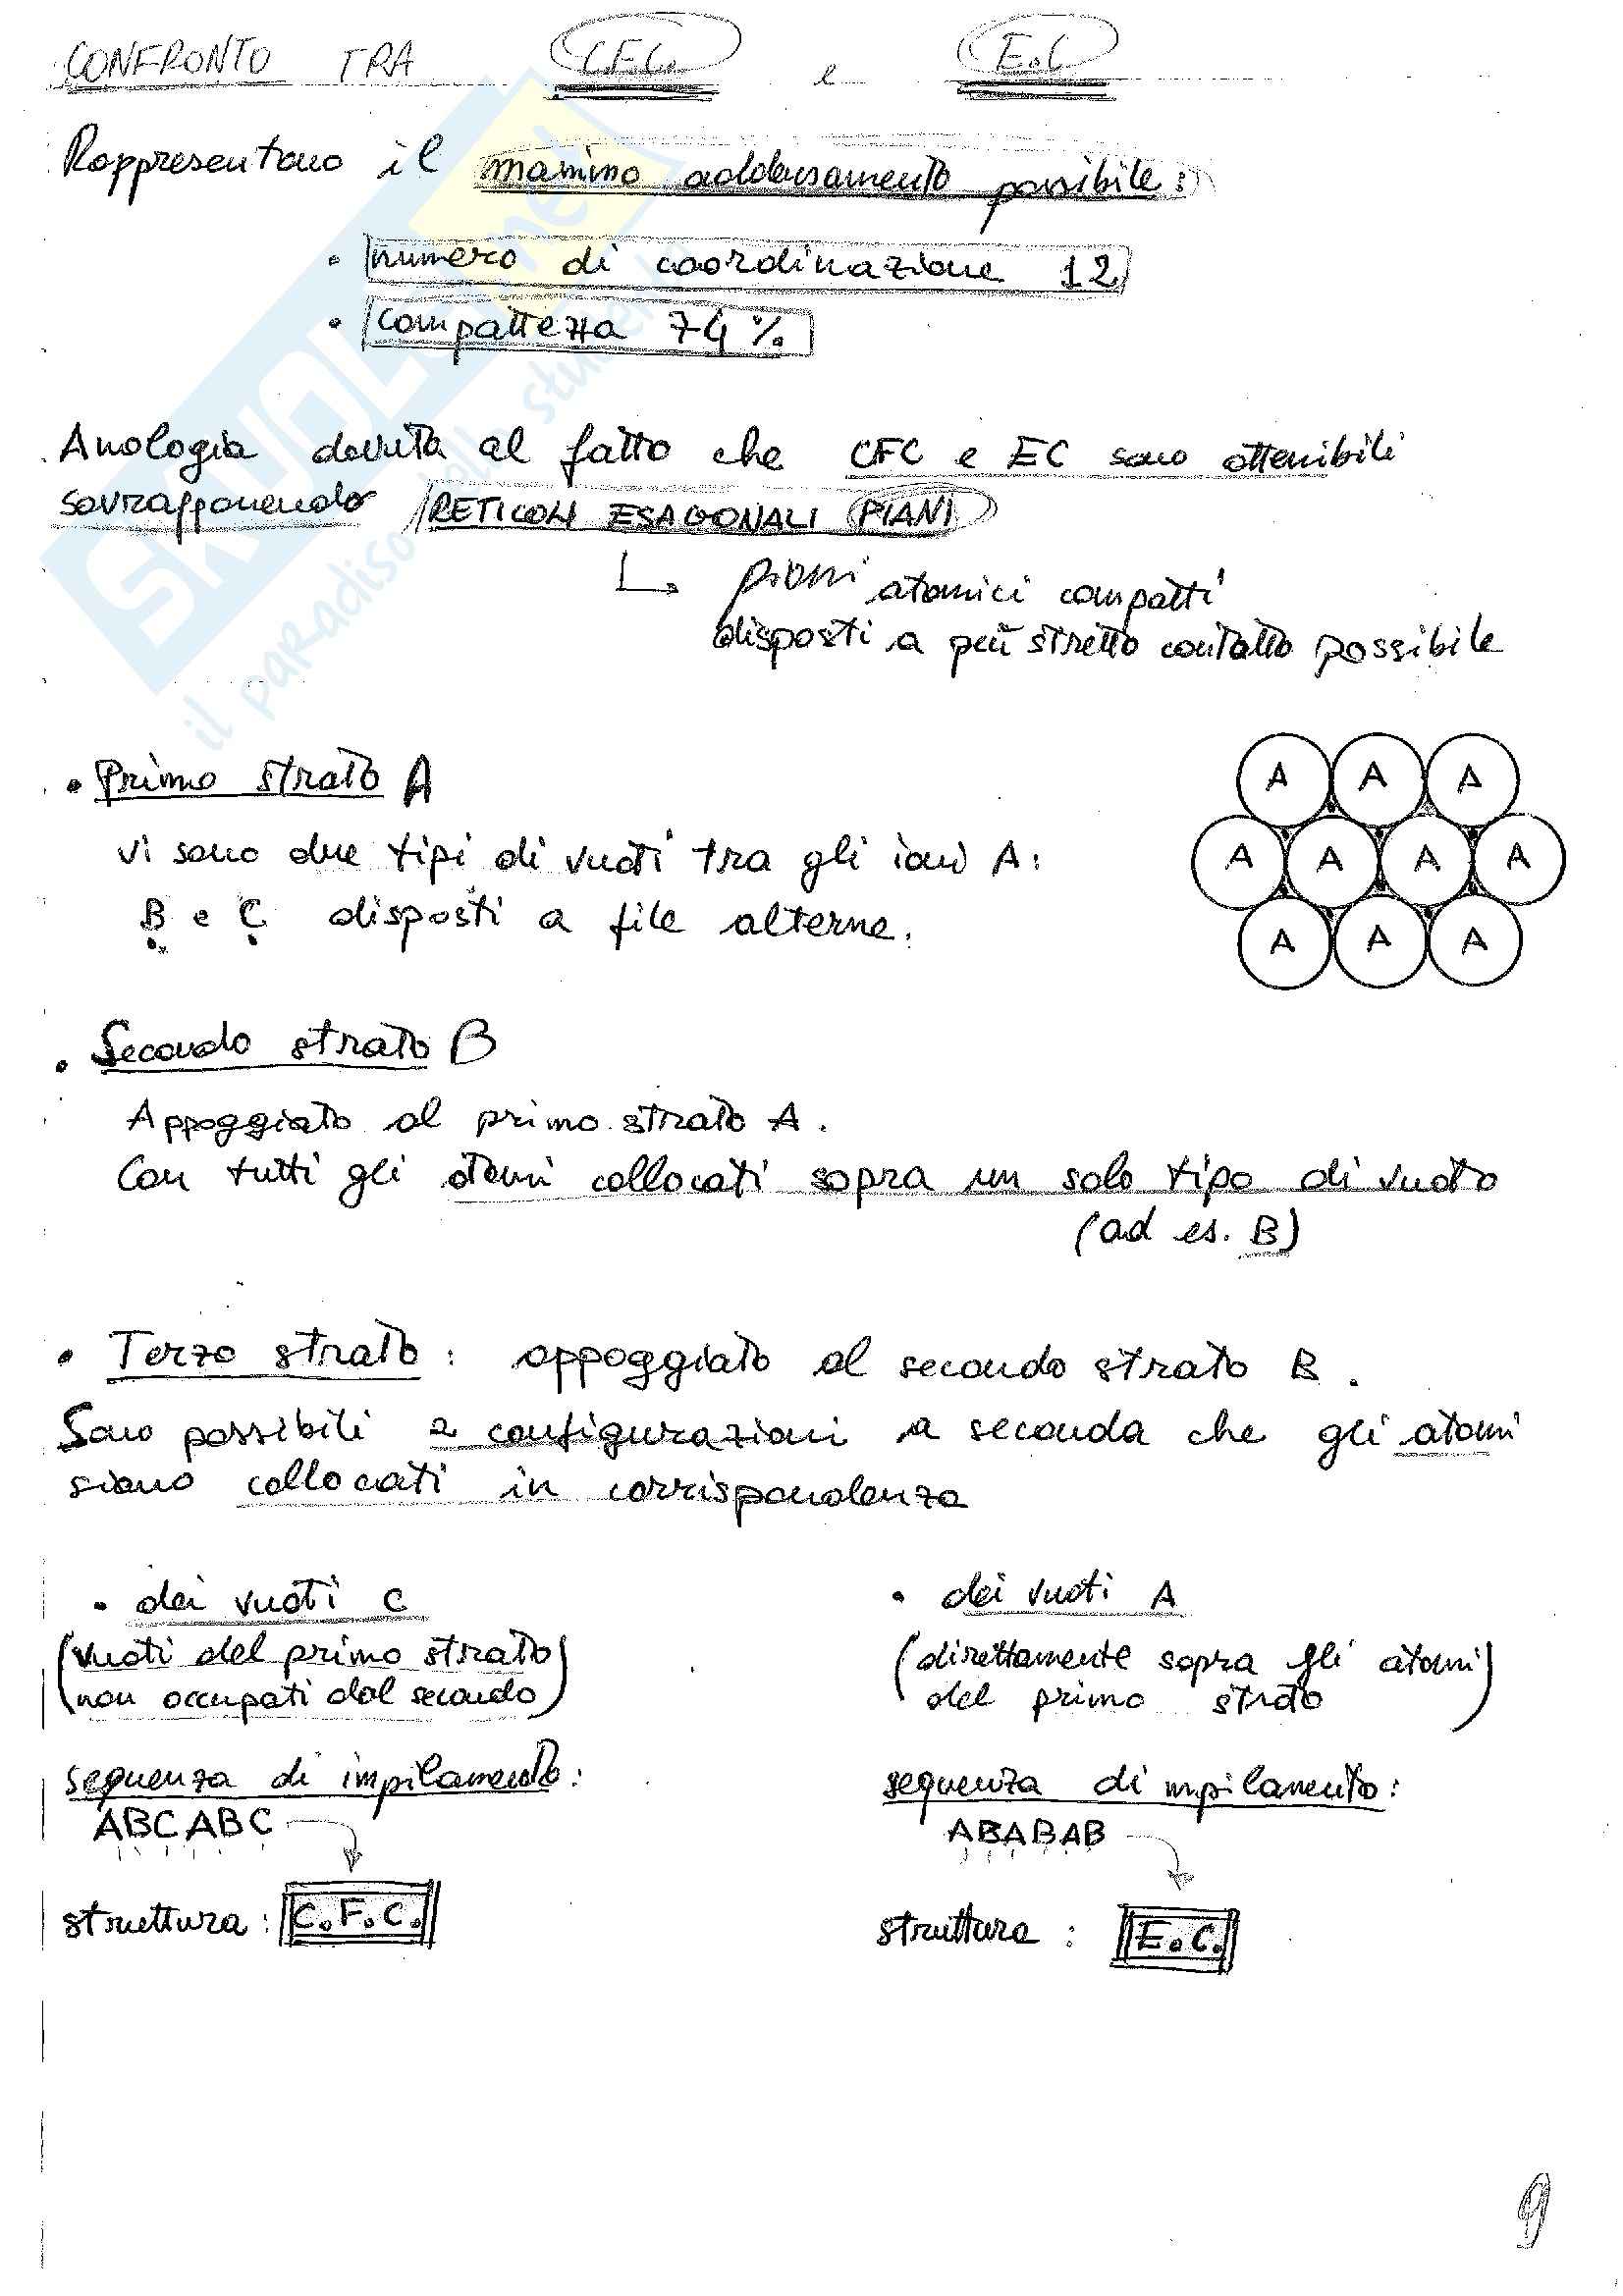 CONFRONTO TRA C.F.C. e E.C
Rappresentano il massimo addensamento possibile:
• numero di coordinazione 12
• compattezza 74%
Analogia dovuta al fatto che CFC e EC sono ottenibili
sovrapponendo RETICOLI ESAGONALI PIANI
↳ piani atomici compatti
disposti a più stretto contatto possibile
• Primo strato A
vi sono due tipi di vuoti tra gli ioni A:
B e C disposti a file alterne.
A A A
A A A A
A A A
• Secondo strato B
Appoggiato al primo strato A.
Con tutti gli atomi collocati sopra un solo tipo di vuoto
(ad es. B)
• Terzo strato: appoggiato al secondo strato B.
Sono possibili 2 configurazioni a seconda che gli atomi
siano collocati in corrispondenza
• dei vuoti C
(vuoti del primo strato
non occupati dal secondo)
sequenza di impilamento:
ABCABC
struttura: C.F.C.
• dei vuoti A
(direttamente sopra gli atomi
del primo strato)
sequenza di impilamento:
ABABAB
struttura: E.C.
9
SKUOLA.net
il paradiso dello studente